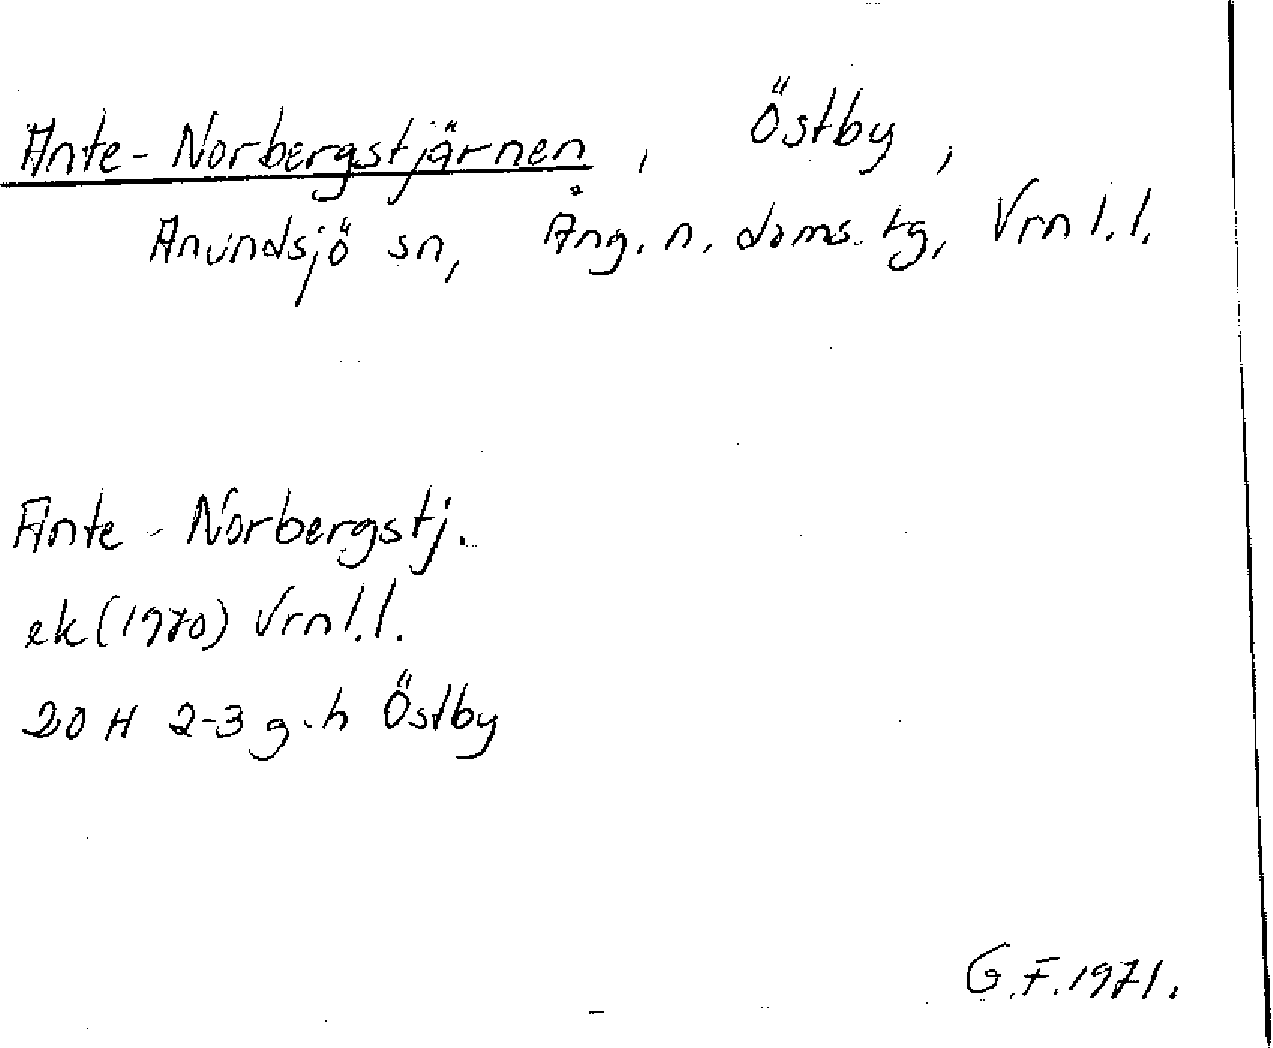 Ante-Norbergstjärnen, Östby,
Anundsjö sn, Ång. n. doms. tg, Vrnl.l.
Ante-Norbergstj.
ek (1970) Vrnl.l.
20 H 2-3 g-h Östby
G.F. 1971.